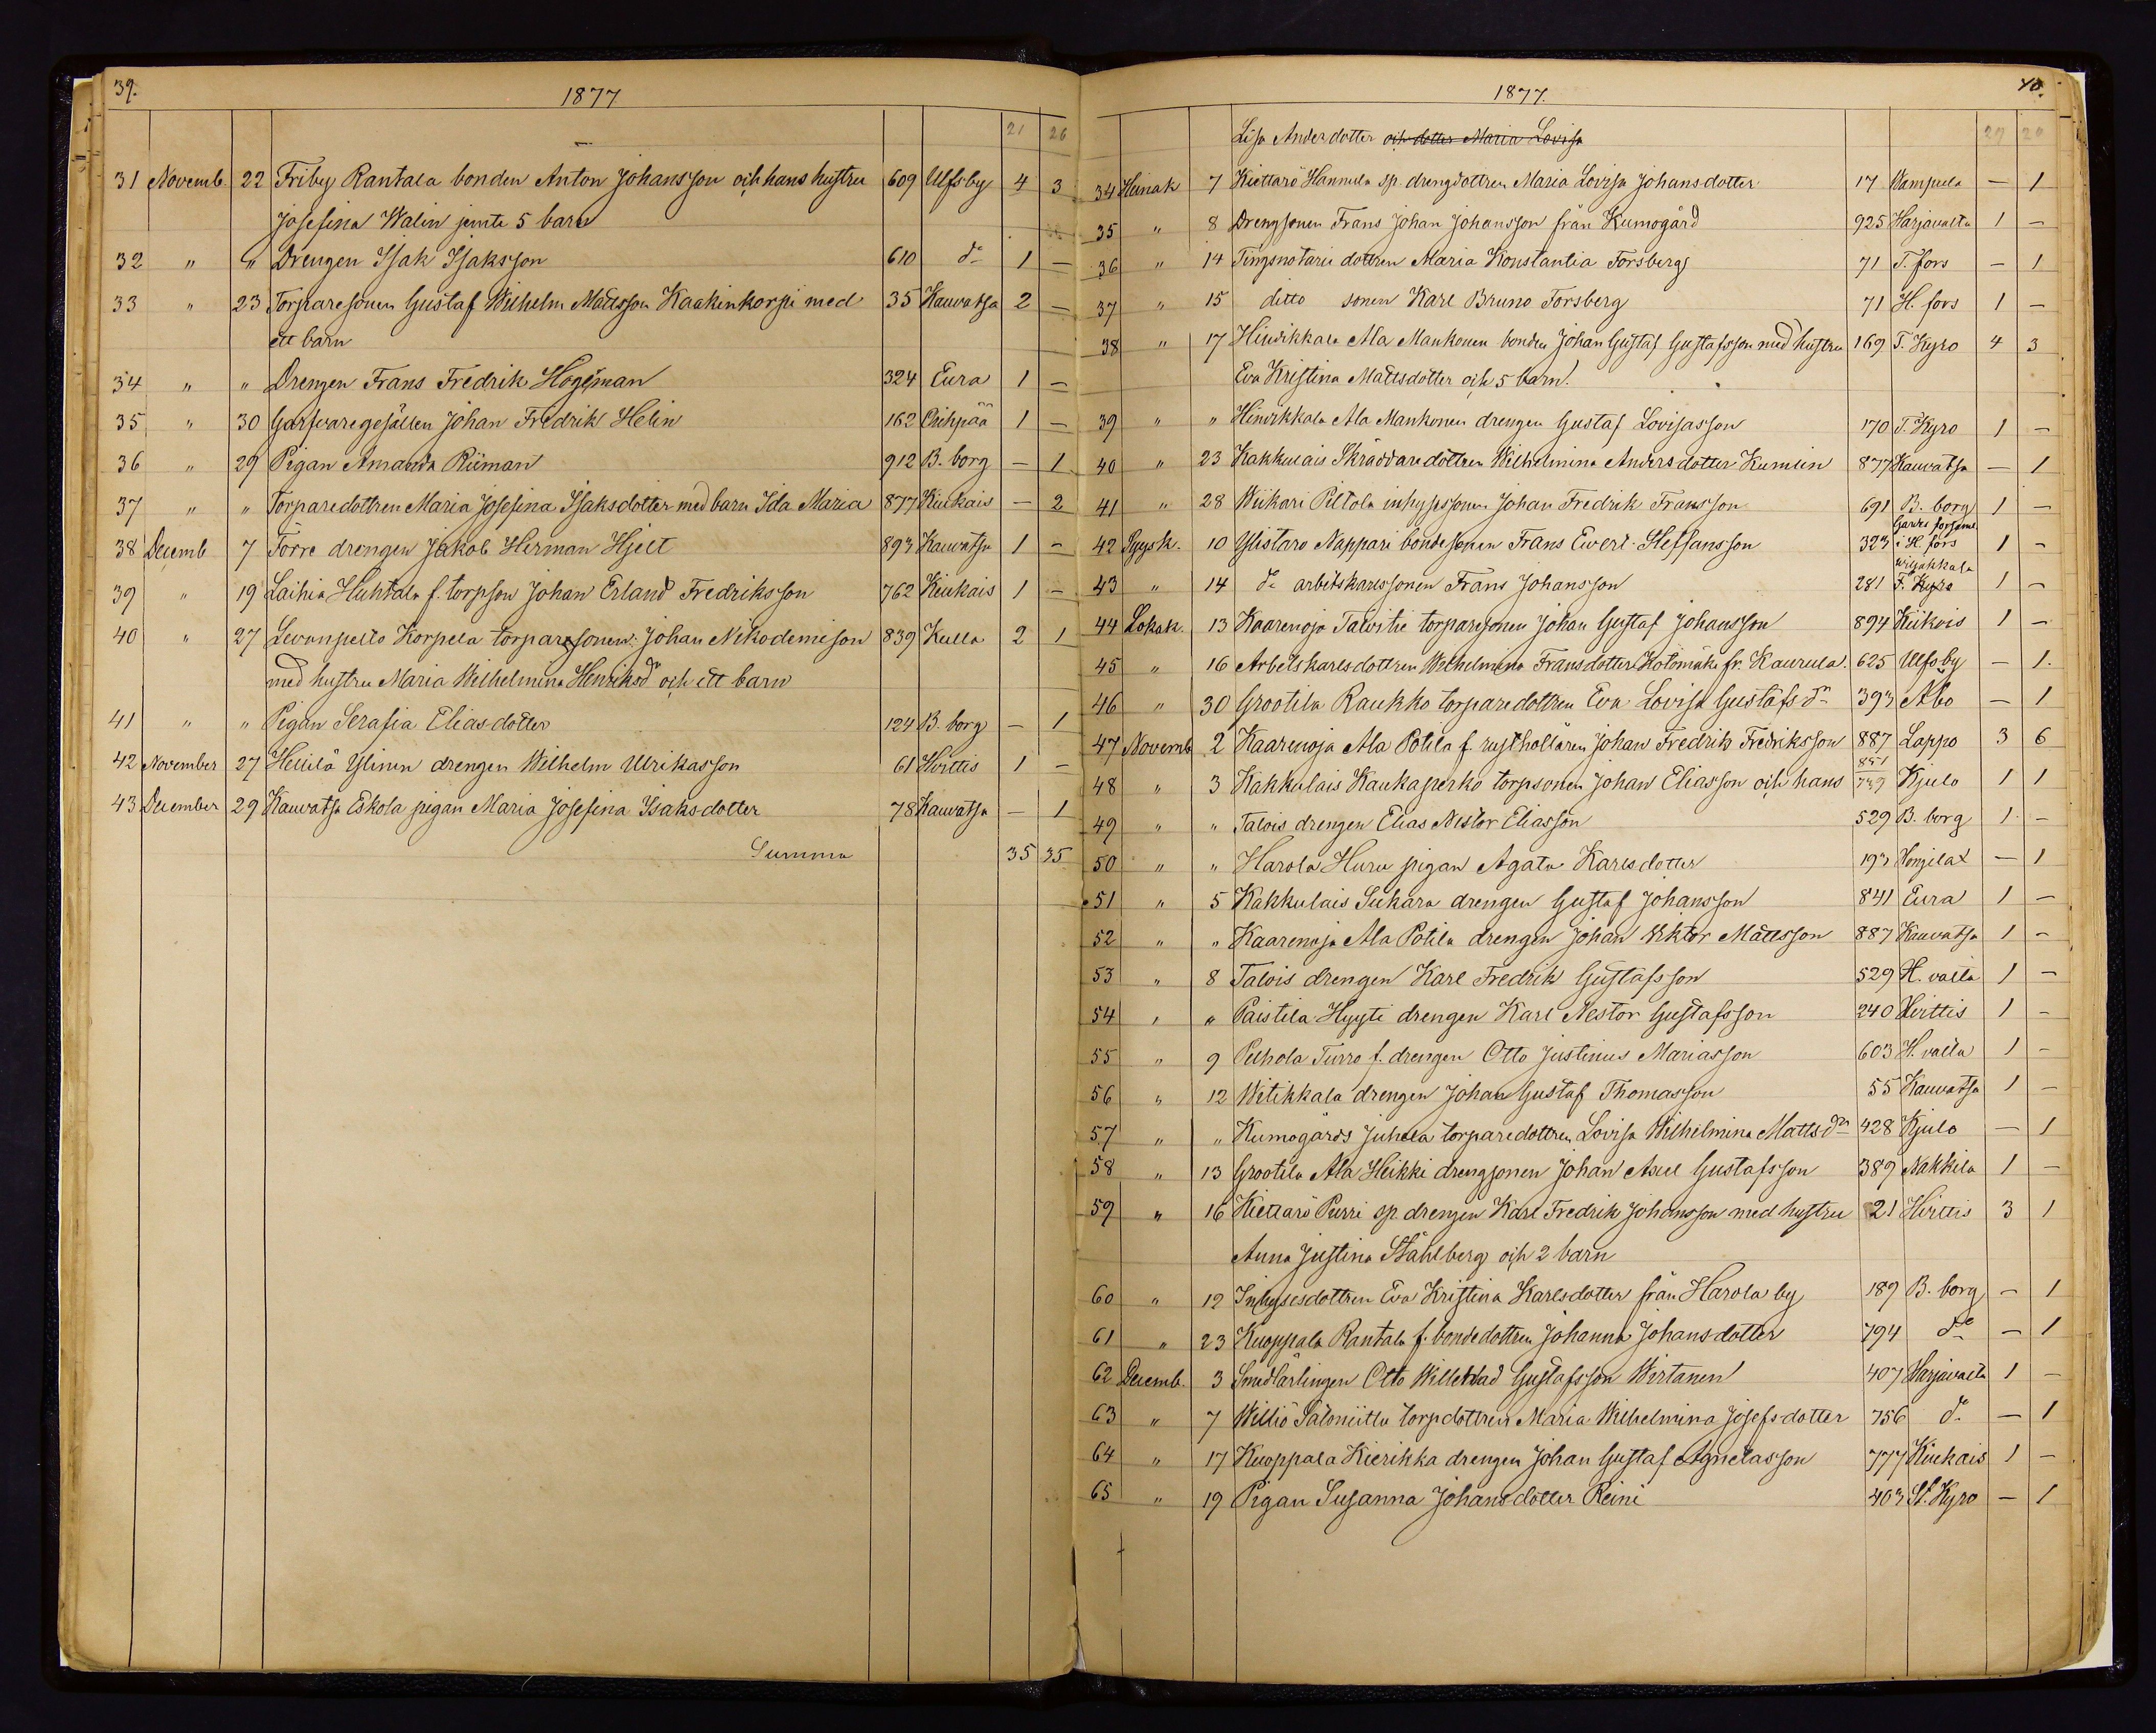 39.
1877
21 26
31 Novemb. 22 Friby Rantala bonden Anton Johansson och hans hustru 609 Ulfsby 4 3
Josefina Walin jemte 5 barn
32 " " Drengen Isak Isaksson 610 do 1 —
33 " 23 Torparesonen Gustaf Wilhelm Mattsson Kaakinkorpi med 35 Kauvatsa 2 —
ett barn
34 " " Drengen Frans Fredrik Högman 324 Eura 1 —
35 " 30 Garfvaregesällen Johan Fredrik Helin 162 1 —
36 " 29 Pigan Amanda Riiman 912 B. borg — 1
37 " " Torparedottren Maria Josefina Isaksdotter med barn Ida Maria 877 Kiukais — 2
38 Decemb 7 Torre drengen Jakob Herman Hjelt 893 Kauvatsa 1 —
39 " 19 Laihia Huhtala f. torpson Johan Erland Fredriksson 762 Kiukais 1 —
40 " 27 Levanpelto Korpela torparesonen Johan Nikodemison 839 Kulla 2 1
med hustru Maria Wilhelmina Henriksdr och ett barn
41 " " Pigan Serafia Eliasdotter 124 B. borg — 1
42 November 27 Heiilä Ylinen drengen Wilhelm Ulrikasson 61 Hvittis 1 —
43 December 29 Kauvatsa Eskola pigan Maria Josefina Isaksdotter 78 Kauvatsa — 1
Summa 35 35
40.
1877.
29 20
Lisa Andersdotter och dotter Maria Lovisa
34 Heinäk 7 Kiettarö Hannula sp. drengdottren Maria Lovisa Johansdotter 17 Wampula — 1
35 " 8 Drengsonen Frans Johan Johansson från Kumogård 925 Harjavalta 1 —
36 " 14 Tingsnotarie dottren Maria Konstantia Forsberg 71 T. fors — 1
37 " 15 ditto sonen Karl Bruno Forsberg 71 H. fors 1 —
38 " 17 Hinrikkala Ala Mankonen bonden Johan Gustaf Gustafsson med hustru 169 T. Kyro 4 3
Eva Kristina Mattsdotter och 5 barn.
39 " " Hinrikkala Ala Mankonen drengen Gustaf Lovisasson 170 T. Kyro 1 —
40 " 23 Kakkulais Skräddaredottren Wilhelmina Andersdotter Kumlin 877 Kauvatsa — 1
41 " 28 Wiikari Piltola inhysessonen Johan Fredrik Fransson 691 B. borg 1 —
42 Syysk. 10 Ylistaro Nappari bondesonen Frans Evert Steffansson 323 Gardes församl. i H. fors 1 —
43 " 14 do arbetskarlssonen Frans Johansson 281 T. Kyro 1 —
44 Lokak. 13 Kaarenoja Talvitie torparesonen Johan Gustaf Johansson 894 Kiikois 1 —
45 " 16 Arbetskarlsdottren Wilhelmina Fransdotter Kotomäki fr. Kaurula 625 Ulfsby — 1.
46 " 30 Grootila Raukko torparedottren Eva Lovisa Gustafsdr 393 Åbo — 1
47 Novemb 2 Kaarenoja Ala Potila f. rusthollaren Johan Fredrik Fredriksson 887 Lappo 3 6
48 " 3 Kakkulais Kaukaperko torpsonen Johan Eliasson och hans 851 Kjulo 1 1
49 " " Talois drengen Elias Nestor Eliasson 529 B. borg 1 —
50 " " Harola Huru pigan Agata Karlsdotter 193 Honjilax — 1
51 " 5 Kakkulais Sukara drengen Gustaf Johansson 841 Eura 1 —
52 " " Kaarenoja Ala Potila drengen Johan Viktor Mattsson 887 Kauvatsa 1 —
53 " 8 Talois drengen Karl Fredrik Gustafsson 529 H. valta 1 —
54 " " Paistila Hyyti drengen Karl Nestor Gustafsson 240 Hvittis 1 —
55 " 9 Peihola Turro f. drengen Otto Justinus Mariasson 603 H. valta 1 —
56 " 12 Witikkala drengen Johan Gustaf Thomasson 55 Kauvatsa 1 —
57 " " Kumogårds Juhela torparedottren Lovisa Wilhelmina Mattsdr 428 Kjulo — 1
58 " 13 Grootila Ala Heikki drengsonen Johan Axel Gustafsson 389 Nakkila 1 —
59 " 16 Kiettarö Purri sp. drengen Karl Fredrik Johansson med hustru 21 Hvittis 3 1
Anna Justina Ståhlberg och 2 barn
60 " 19 Inhysesdottren Eva Kristina Karlsdotter från Harola by 189 B. borg — 1
61 " 23 Kuoppala Rantala f. bondedottren Johanna Johansdotter 794 do — 1
62 Decemb. 3 Smedlärlingen Otto Willehad Gustafsson Wirtanen 407 Harjavalta 1 —
63 " 7 Williö Saloniittu torpdottren Maria Wilhelmina Josefsdotter 756 do — 1
64 " 17 Kuoppala Kierikka drengen Johan Gustaf Agnetasson 777 Kiukais 1 —
65 " 19 Pigan Susanna Johansdotter Reini 403 St. Kyro — 1